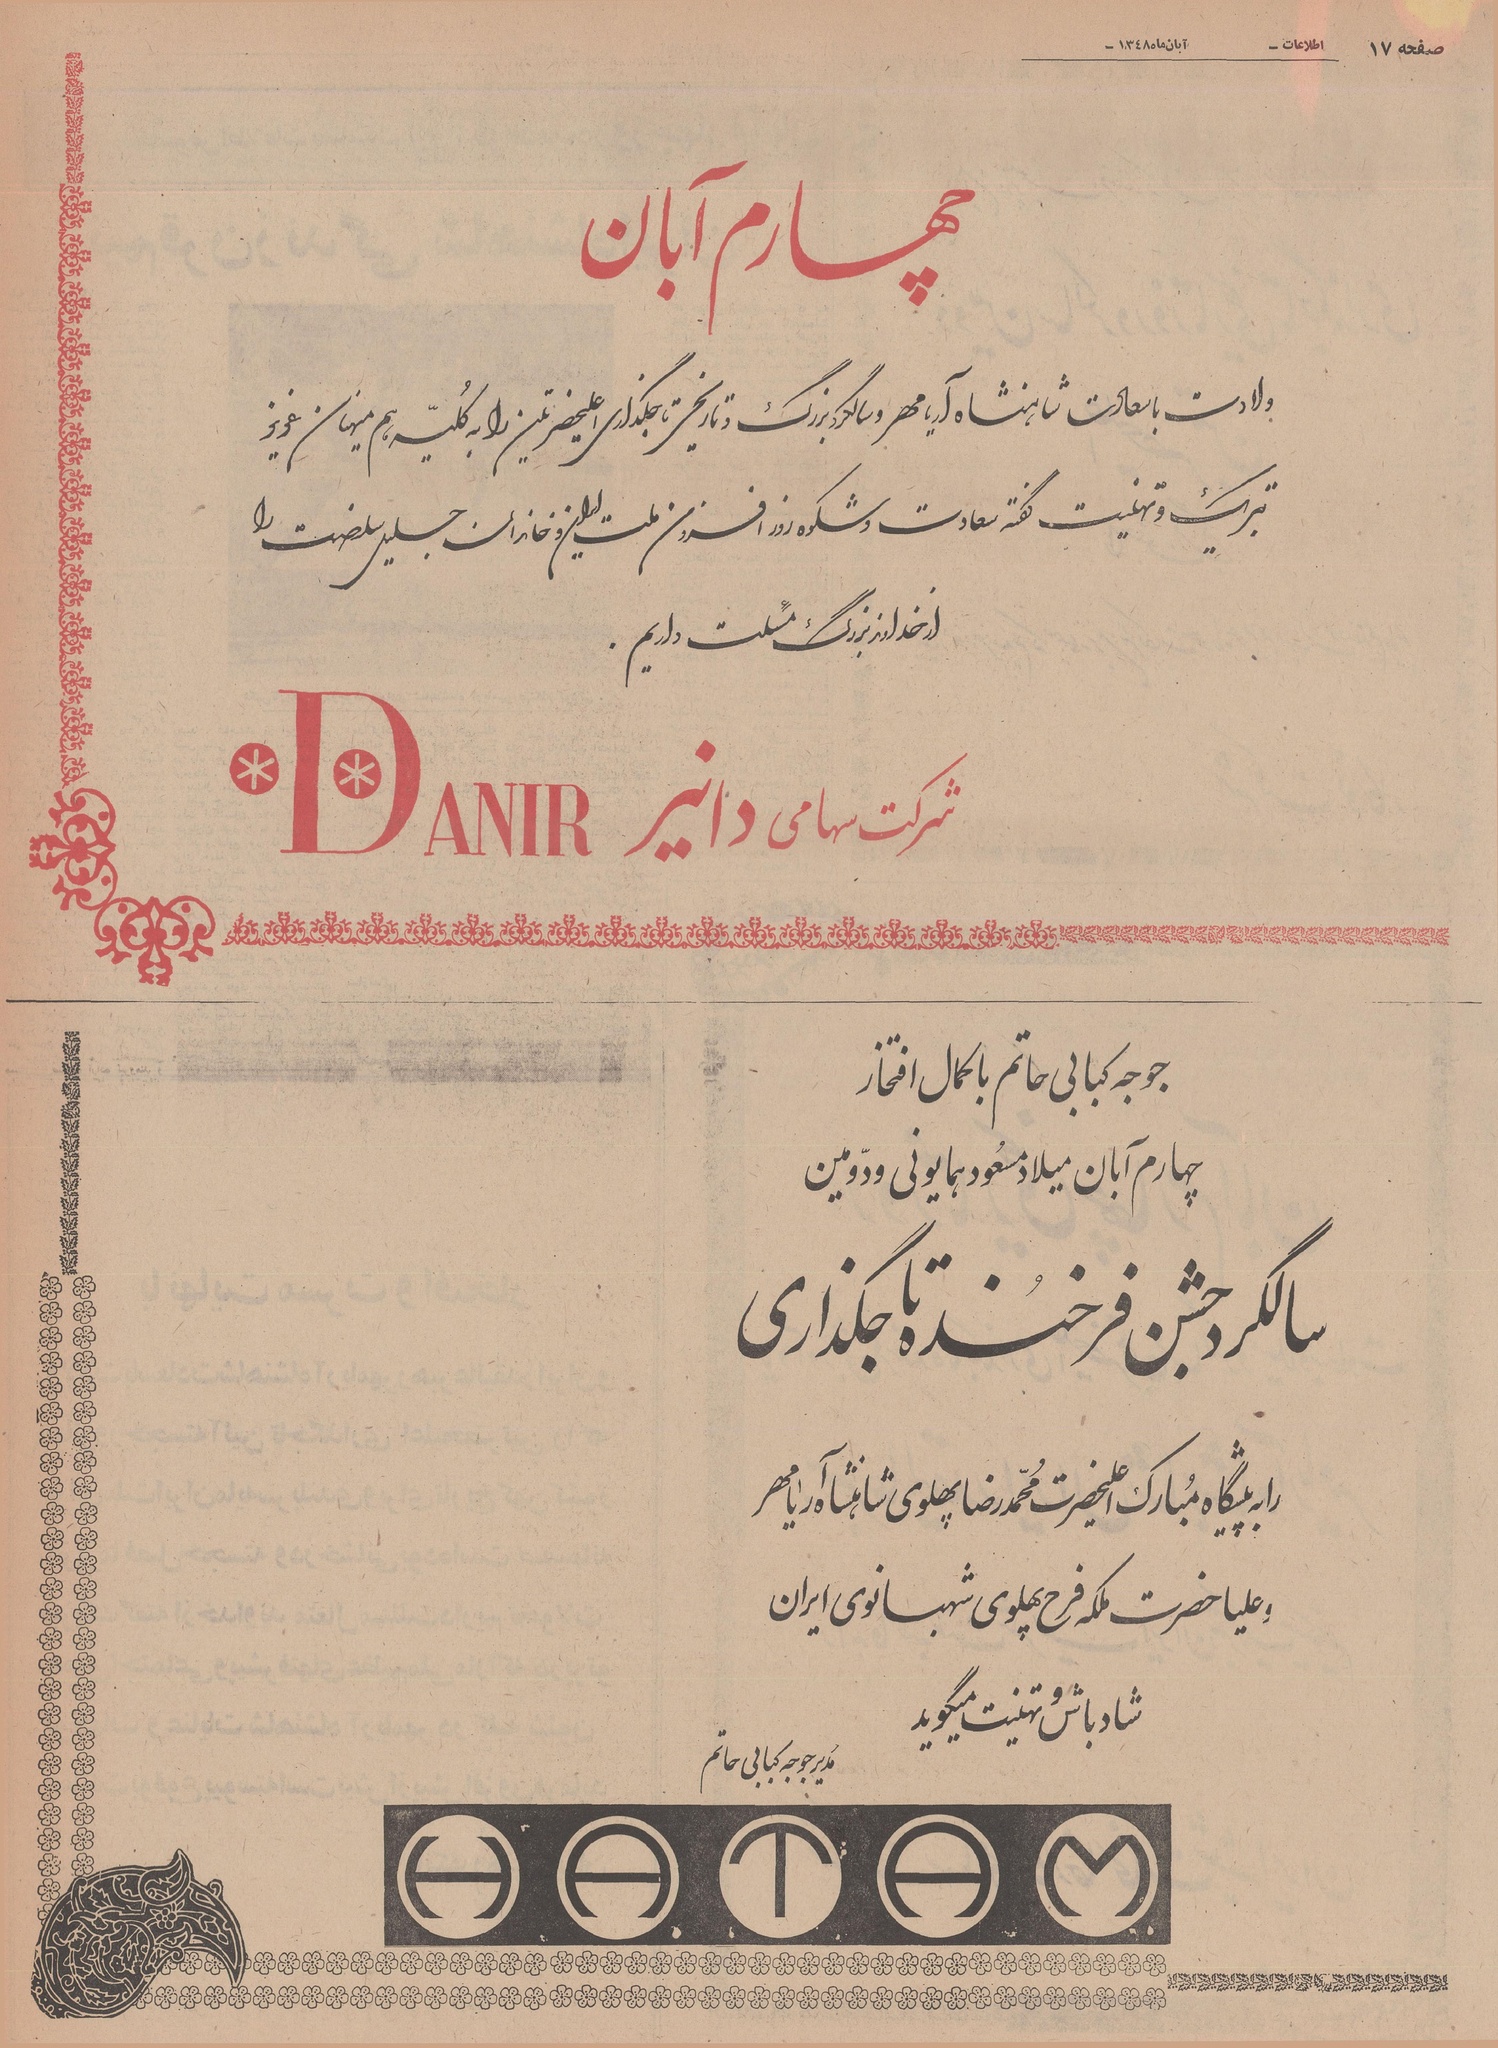 صفحه ۱۷
اطلاعات –
آبان‌ماه ۱۳۴۸ –
چهارم آبان
ولادت با سعادت شاهنشاه آریامهر و سالگرد بزرگ و تاریخی تاجگذاری اعلیحضرتین را به کلیّه هم میهنان عزیز
تبریک و تهنیت گفته سعادت و شکوه روز افزون ملت ایران و خاندان جلیل سلطنت را
از خداوند بزرگ مسئلت داریم .
شرکت سهامی دانیر DANIR
جوجه کبابی حاتم با کمال افتخار
چهارم آبان میلاد مسعود همایونی و دوّمین
سالگرد جشن فرخنده تاجگذاری
را به پیشگاه مُبارک اعلیحضرت مُحمّد رضا پهلوی شاهنشاه آریامهر
و علیاحضرت ملکه فرح پهلوی شهبانوی ایران
شادباش و تهنیت میگوید
مُدیر جوجه کبابی حاتم
HATAM